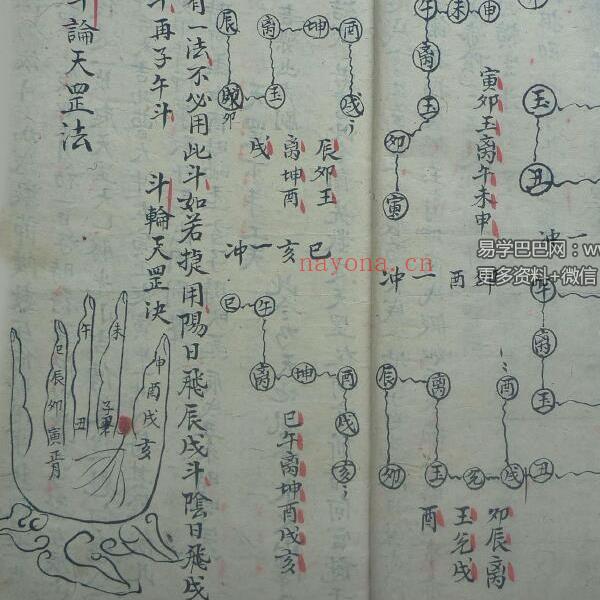 寅卯玉离午未申
冲一酉
卯辰离
玉兑戌
酉
午未申
离
玉
卯
寅
玉
丑
冲一
午
离
玉
丑
辰离
酉
卯玉兑戌
辰离坤酉
玉戌
卯
辰卯玉
离坤酉
戌
冲一亥巳
巳午
离坤酉
戌
亥
巳午离坤酉戌亥
有一法不必用此斗如若捷用陽日飛辰戌斗陰日飛戌
斗再子午斗
斗輪天罡决
斗論天罡法
巳辰卯寅正月
午
丑
未
子
申酉戌亥
nayona.cn
易学巴巴网：w
更多资料+微信